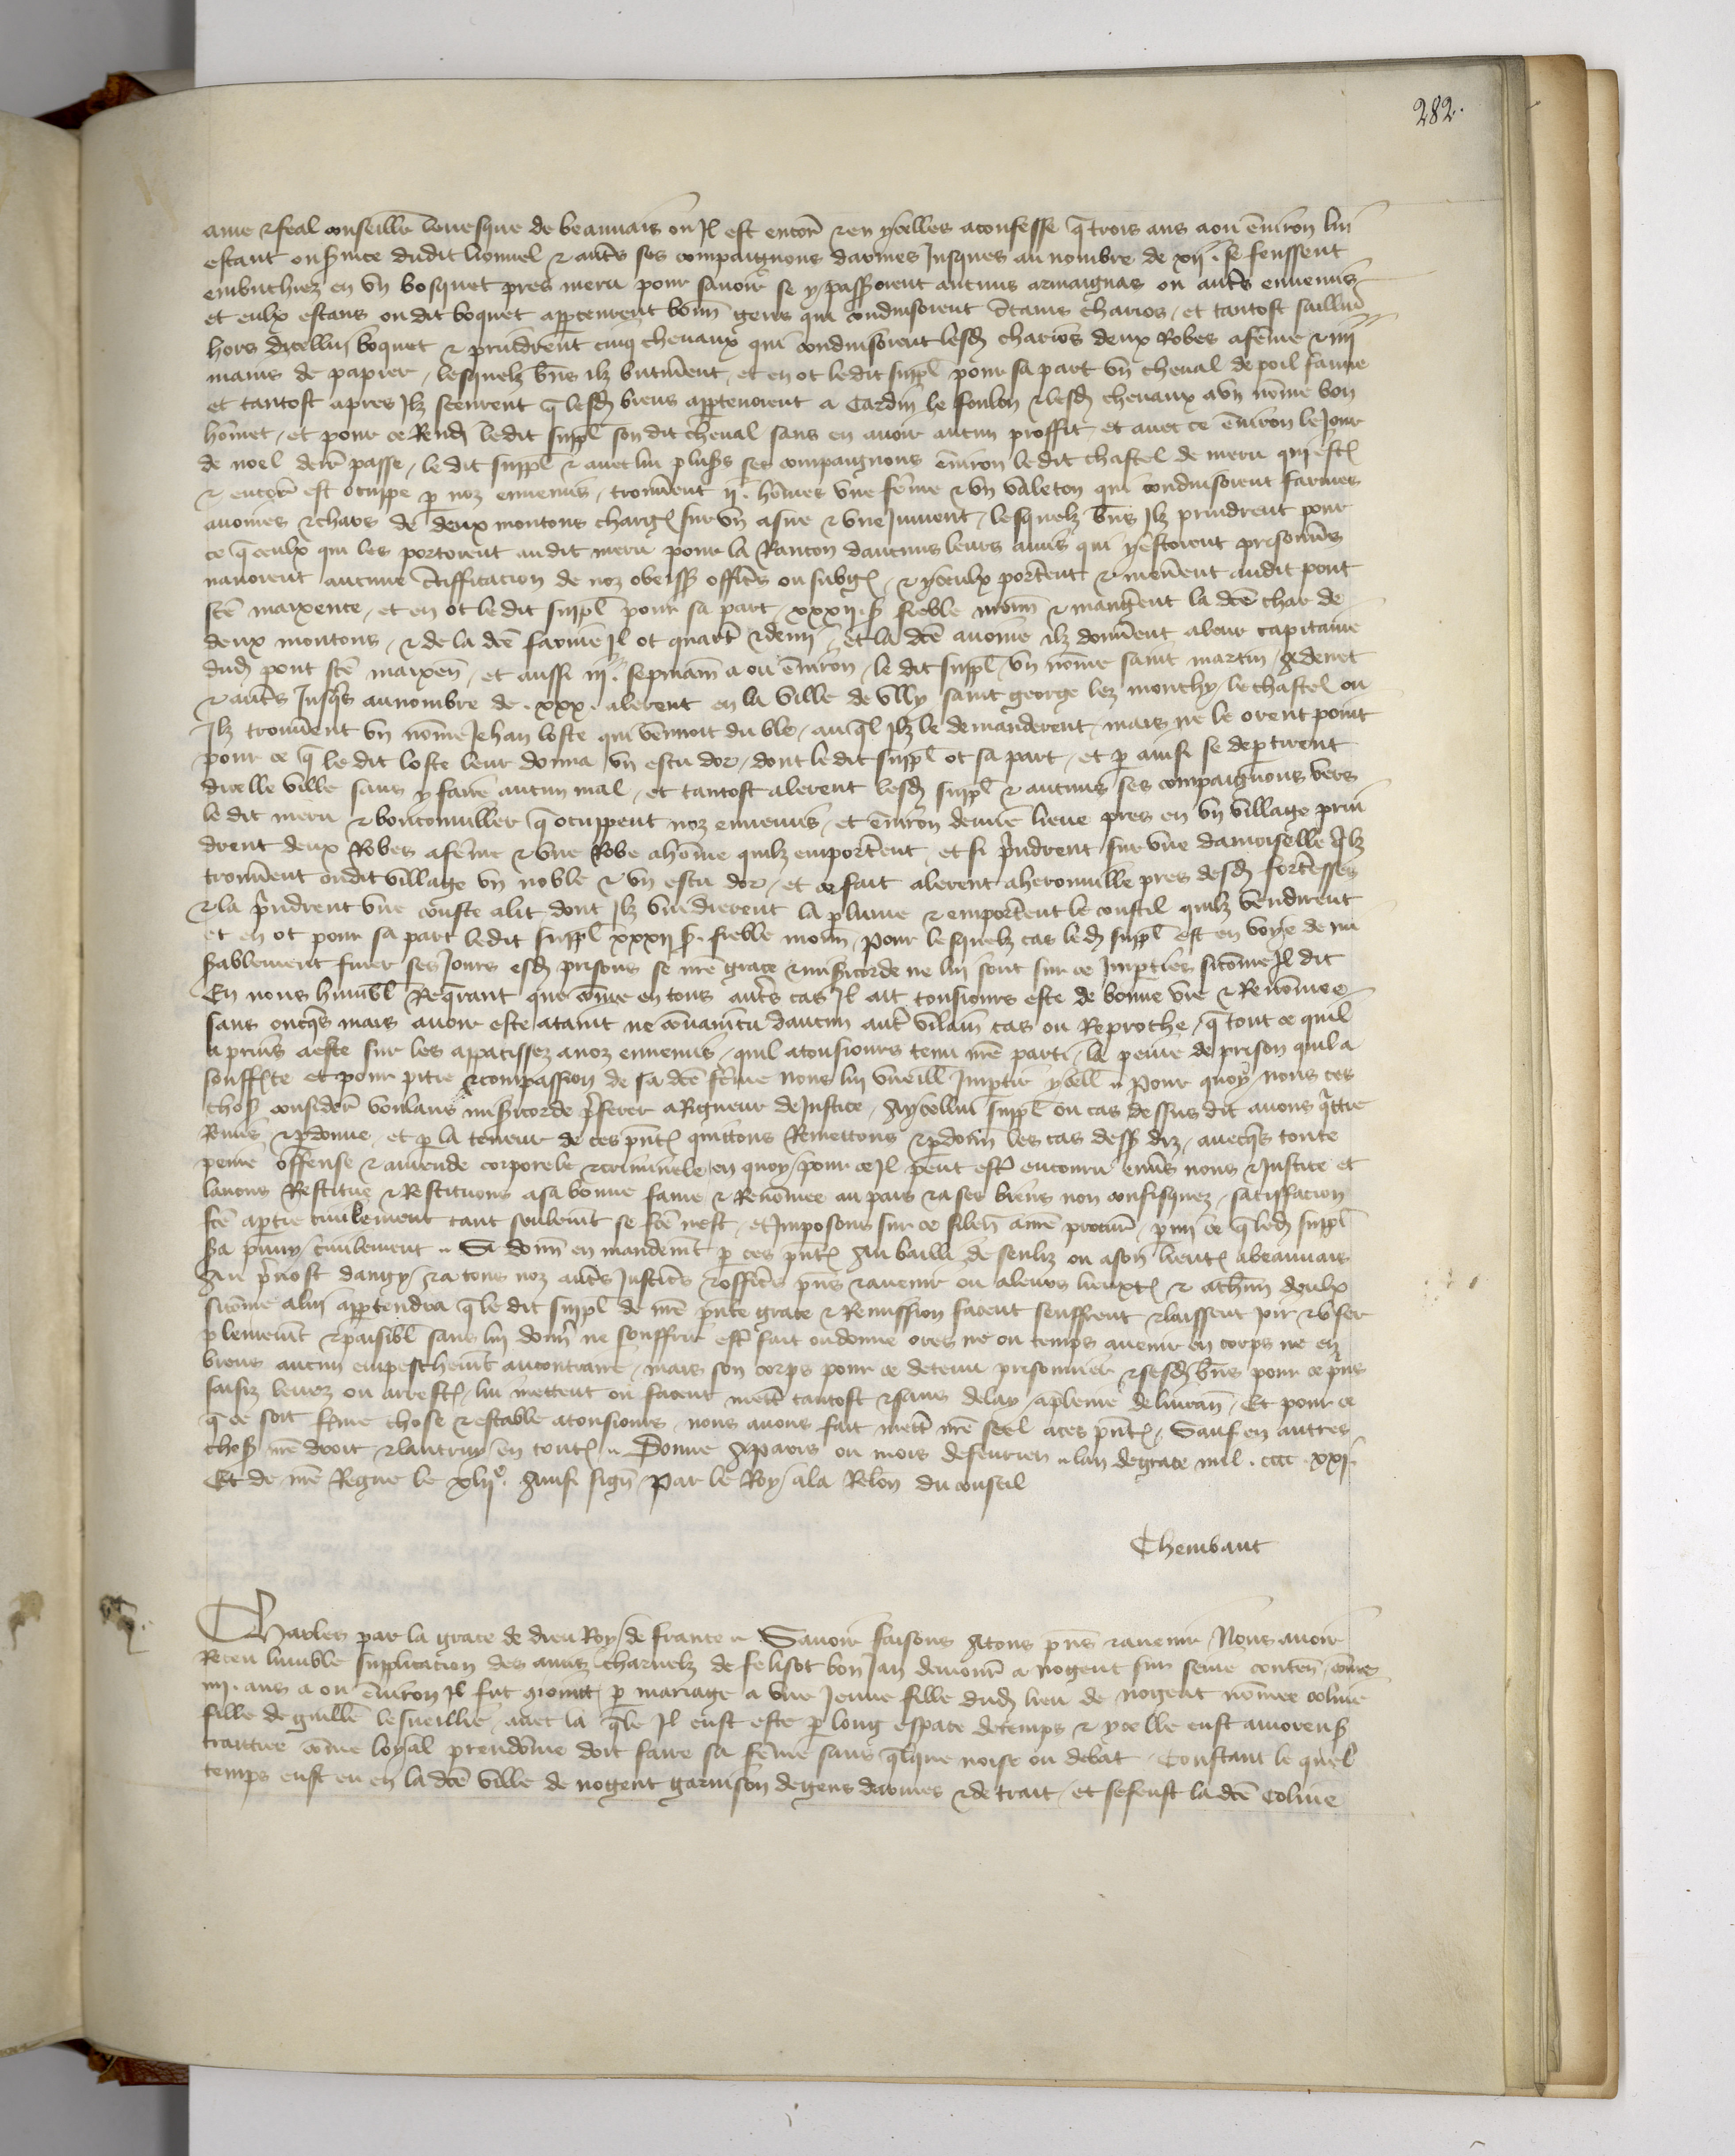 282.
ame & feal conseillr levesque de beauvais ou Il est encor & en ycelles a confesse q trois ans a ou environ lui
estant ou suice dudit lionnel & autrs ses compaignons darmes Jusques au nombre de xij. se feussent
embuchiez en un bosquet pres meru pour savoir se y passoient aucuns armaignas ou autrs ennemis
et eulx estans ou dit boquet apperceurent bonn gens qui conduisoient ctains charios, et tantost saillir
hors dicellui boquet & prindrent cinq chevaux qui conduisoient lesd charios deux Robes a feme & iiij
mains de papier, lesquelz bns ilz butinent, et en ot ledit suppl pour sa part un cheval de poil fauve
et tantost apres Ilz sceurent q lesd biens appertenoient a Cardin le foulon & lesd chevaux a un nome bon
homet, et pour ce Rend ledit suppl son dit cheval sans en avoir aucun proffit, et avec ce environ le Jour
de noel derr passe, le dit suppl & avec lui plusrs ses compaignons environ le dit chastel de meru qui est
& encor est ocuppe p noz ennemis, trouvent ij. homes une feme & un valeton qui conduisoient farines
avoines & chars de deux moutons charg sur un asne & une Jument, lesquelz bns Ilz prindrent pour
ce q ceulx qui les portoient audit meru pour la Rancon daucuns leurs amis qui y estoient prisonns
navoient aucune ctifficacion de noz obeiss officrs ou subg, & yceulx portent & menent audit pont
ste maixence, et en ot le dit suppl pour sa part xxxij. s fieble monn & mangent la dce char de
deux moutons, & de la dce farine Il ot quart & demj, et la dce avoine ilz donnent a leur capitaine
dud pont ste maixen, et aussi iij. sepmain a ou environ, le dit suppl, un nome saint martin, gedenet
& autrs Jusqs au nombre de .xxx. alerent en la ville de ully saint george lez monchy, le chastel ou
Ilz trouvent un nome Jehan loste qui vennoit du ble, auql Ilz le demanderent, mais ne le orent point
pour ce q le dit loste leur donna un escu dor, dont le dit suppl ot sa part, et p ainsi se deptirent
dicelle ville sans y faire aucun mal, et tantost alerent lesd suppl & aucuns ses compaignons vers
le dit meru & bouconviller q ocuppent noz ennemis, et environ demie lieue pres en un village prin
drent deux Robes a feme & une Robe a home quilz emportent, et si prindrent sur une damoiselle qlz
trouvent oudit village un noble & un escu dor, et ce fait alerent a heronville pres desd fortesses
& la prindrent une couste a lit dont Ilz vuidierent la plume & emportent le coustil quilz vendirent
et en ot pour sa part ledit suppl xxxij s. fieble monn, Pour lesquelz cas led suppl est en voye de mi
sablement finer ses Jours esd prisons se nre grace & misicorde ne lui sont sur ce Imparties sicome Il dit
En nous humbl Requrant que come en tous autrs cas Il ait tousiours este de bonne vie & Renomee
sans oncqs mais avoir este ataint ne convaincu daucun autr vilain cas ou Reproche, q tout ce quil
a prins a este sur les appatissez a noz ennemis, quil a tousiours tenu nre parti, la peine de prison quil a
soufferte et pour pitie & compassion de sa dce feme nous lui vueill Impartir ycell. Pour quoy nous ces
chos consider voulans misicorde preferer a Rigueur de Justice, A ycellui suppl ou cas dessus dit avons qttie
Remis & pdonne, et p la teneur de ces pnt quittons Remettons & pdonn les cas dess diz, avecqs toute
peine offense & amende corporele & criminele en quoy pour ce Il peut estr encouru envs nous & Justice et
lavons Restitue & Restituons a sa bonne fame & Renomee au pais & a ses biens non confisquez, satisfacion
fce a ptie civilement tant seulemt se fce nest, et Imposons sur ce silen a nre procur, pmi ce q led suppl
sa puny civilement. Si donn en mandemt p ces pnt Au bailli de senliz ou a son lieut a beauvais
Au prevost dangy, & a tous noz autrs Justicrs & officrs pns & avenir ou a leurs lieuxt & a chun deulx
sicome a lui appertendra q le dit suppl de nre pnte grace & Remission facent seuffrent & laissent joir & user
plenement & paisibl sans lui donnr ne souffrir estr fait ou donne ores ne ou temps avenir en corps ne en
biens aucun empeschemt au contraire, mais son corps pour ce detenu prisonnier & sesd bns pour ce prins
saisiz levez ou arrest, lui mettent ou facent mett tantost & sans delay a pleine delivran, Et pour ce
q ce soit ferme chose & estable a tousiours, nous avons fait mett nre scel a ces pnt, Sauf en autres
chos nre droit, & lautruy en tout. Donne A paris ou mois de fevrier lan de grace mil .cccc.xxj.
Et de nre Regne le xlije. Ainsi sign Par le Roy a la Relon du conseil
Chembaut
Charles par la grace de dieu Roy de france. Savoir faisons A tous pns & avenir, Nous avoir
Receu lumble supplicacion des amis charnelz de felisot bon Jan demour a nogent sur seine conten, come
iiij. ans a ou environ Il fut conioint p mariage a une Jeune fille dud lieu de nogent nomee coline
fille de guille le sueillie, avec la qle Il eust este p long espace de temps & ycelle eust amoreus
traictiee come loyal preudome doit faire sa feme sans qlque noise ou debat. Constant le quel
temps eust eu en la dce ville de nogent garnison de gens darmes & de trait, et se feust la dce coline